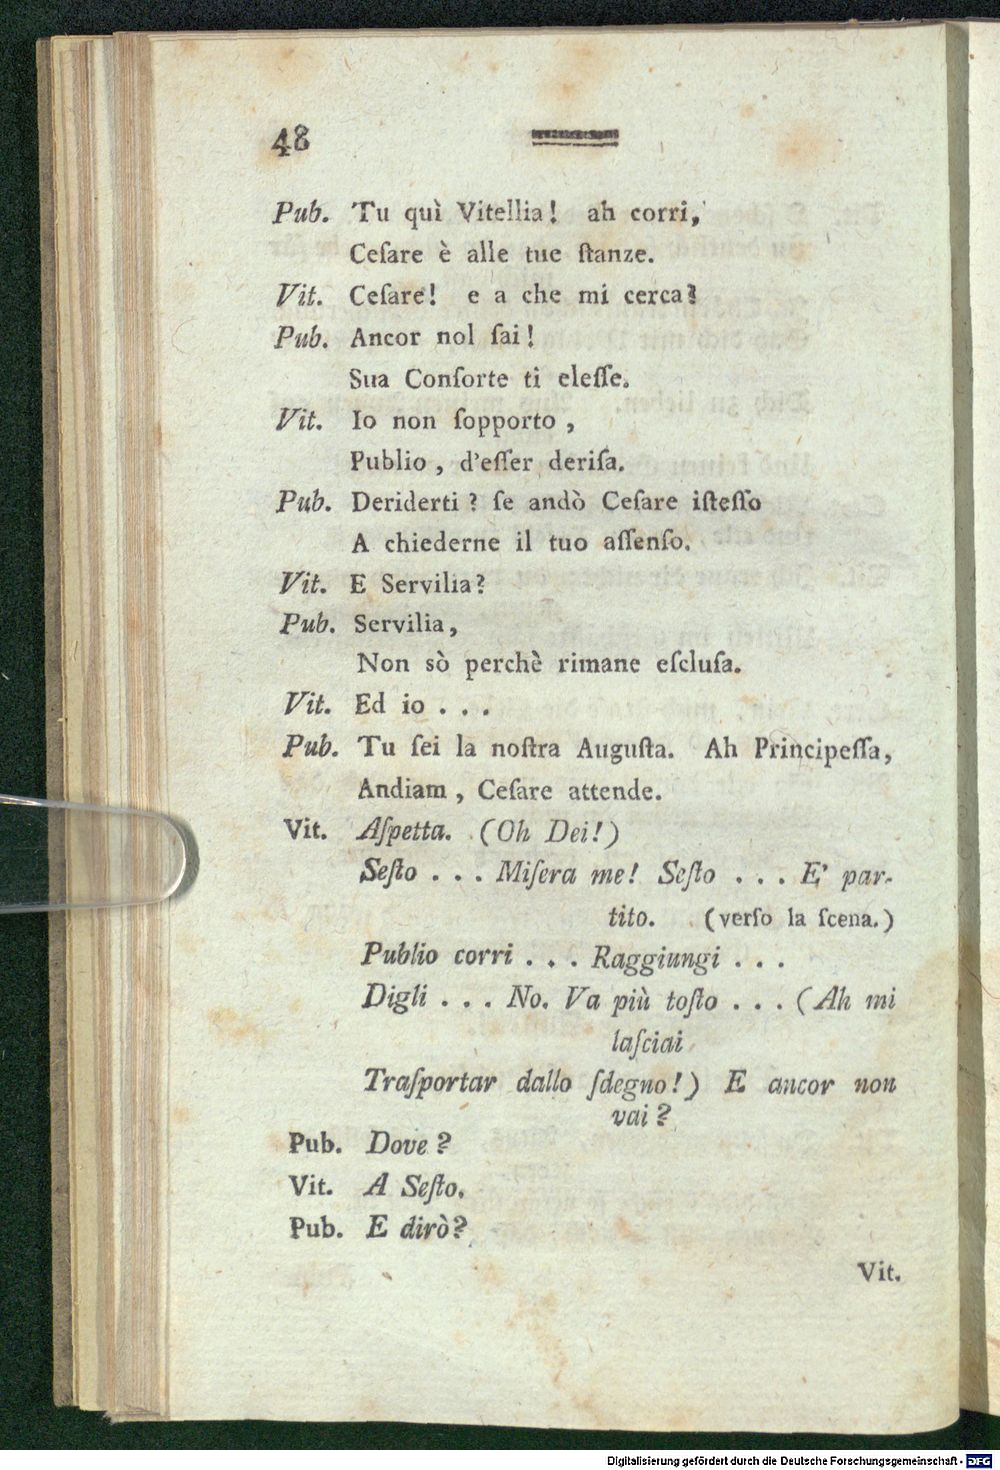 48
Pub. Tu quì Vitellia! ah corri,
Ceſare è alle tue ſtanze.
Vit. Ceſare! e a che mi cerca?
Pub. Ancor nol ſai!
Sua Conſorte ti eleſſe.
Vit. Io non ſopporto,
Publio, d'eſſer deriſa.
Pub. Deriderti? ſe andò Ceſare iſteſſo
A chiederne il tuo aſſenſo.
Vit. E Servilia?
Pub. Servilia,
Non sò perchè rimane eſcluſa.
Vit. Ed io . . .
Pub. Tu ſei la noſtra Auguſta. Ah Principeſſa,
Andiam, Ceſare attende.
Vit. Aſpetta. (Oh Dei!)
Seſto . . . Miſera me! Seſto . . . E' par-
tito. (verſo la ſcena.)
Publio corri . . . Raggiungi . . .
Digli . . . No. Va più toſto . . . (Ah mi
laſciai
Traſportar dallo ſdegno!) E ancor non
vai?
Pub. Dove?
Vit. A Seſto.
Pub. E dirò?
Vit.
Digitalisierung gefördert durch die Deutsche Forschungsgemeinschaft - DFG